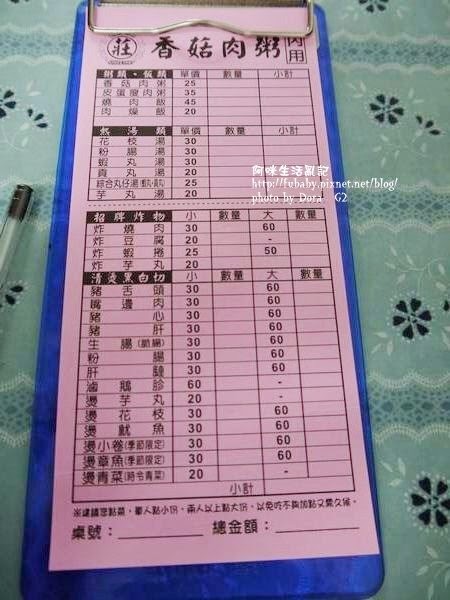 莊 香菇肉粥 內用
粥類、飯類 單價 數量 小計
香菇肉粥 25
皮蛋瘦肉粥 35
燒肉飯 45
肉燥飯 20
熱湯類 單價 數量 小計
花枝湯 30
粉腸湯 30
蝦丸湯 30
貢丸湯 20
綜合丸仔湯 25
芋丸湯 30
招牌炸物 小 數量 大 數量
炸燒肉 30 60
炸豆腐 20 -
炸蝦捲 25 50
炸芋丸 20
清燙黑白切 小 數量 大 數量
豬舌頭 30 60
嘴邊肉 30 60
豬心 30 60
豬肝 30 60
生腸(脆腸) 30 60
粉腸 30 60
肝臟 30 60
滷鵝胗 60 -
燙芋丸 20 -
燙花枝 30 60
燙魷魚 30 60
燙小卷(季節限定) 30 60
燙章魚(季節限定) 30 60
燙青菜(時令青菜) 20 -
小計
※建議您點菜，單人點小份，兩人以上點大份，以免吃不夠加點又要久候。
桌號： 總金額：
阿咪生活亂記
http://fubaby.pixnet.net/blog/
photo by Dora G2